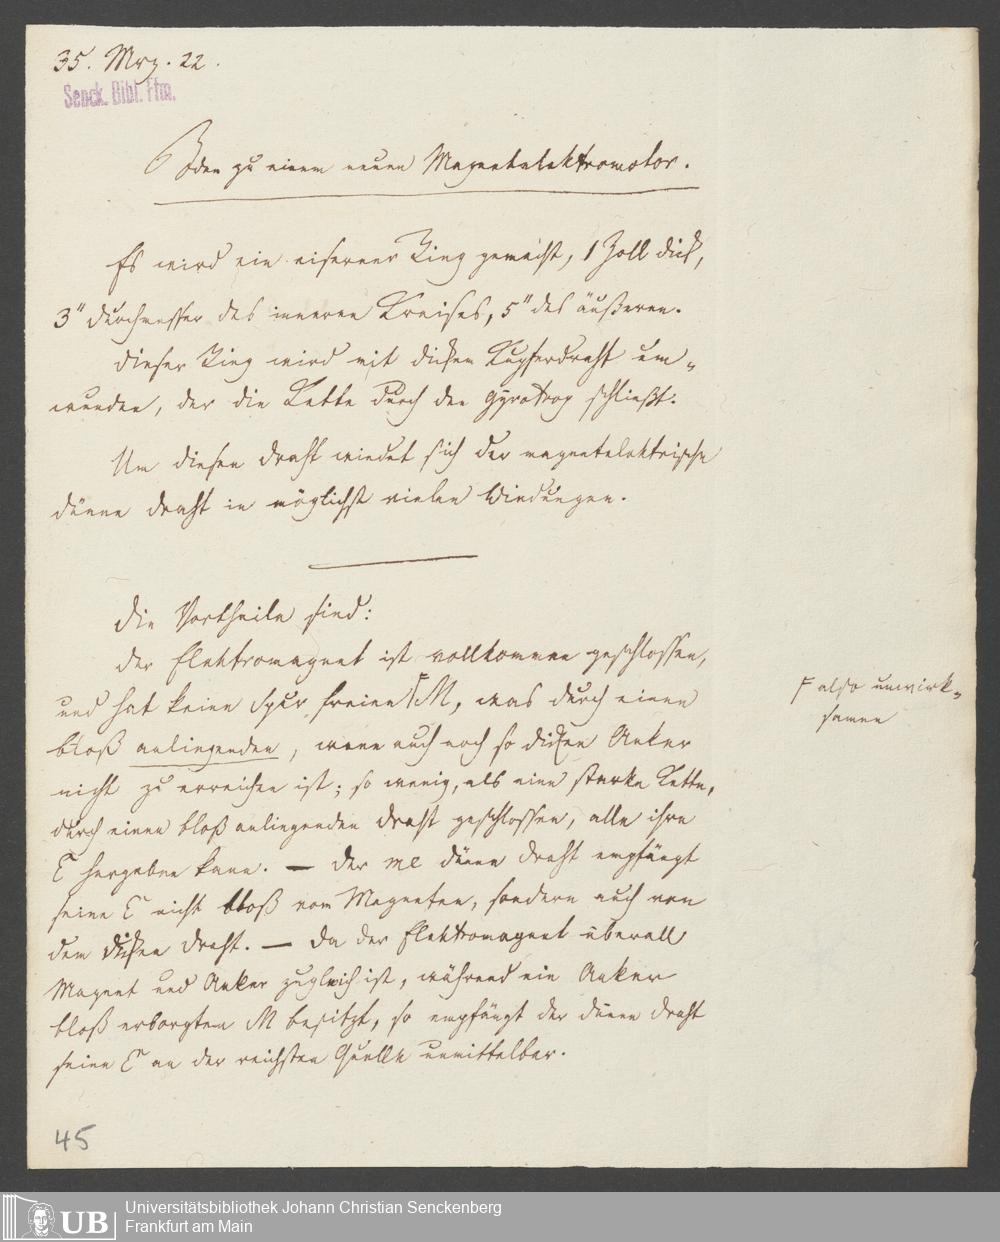 35. Mrz. 22.
Senck. Bibl. Ffm.
Ideen zu einem neuen Magnetelektromotor.
Es wird ein eiserner Ring gemacht, 1 Zoll dick,
3" Durchmesser des inneren Kreises, 5" des äußeren.
Dieser Ring wird mit dicken Kupferdraht um-
wunden, der die Kette durch den Gyrotrop schließt.
Um diesen Draht windet sich der magnetelektrische
dünne Draht in möglichst vielen Windungen.
Die Vortheile sind:
Der Elektromagnet ist vollkommen geschlossen,
und hat keine Spur freien M, was durch einen
F also unwirk-
samen
bloß anliegenden, wenn auch noch so dicken Anker
nicht zu erreichen ist; so wenig, als eine starke Kette,
durch einen bloß anliegenden Draht geschlossen, alle ihre
E hergeben kann. — Der me dünne Draht empfängt
seine E nicht bloß vom Magneten, sondern auch von
dem dicken Draht. — Da der Elektromagnet überall
Magnet und Anker zugleich ist, während ein Anker
bloß erborgten M besitzt, so empfängt der dünne Draht
seine E an der reichsten Quelle unmittelbar.
45
UB
Universitätsbibliothek Johann Christian Senckenberg
Frankfurt am Main